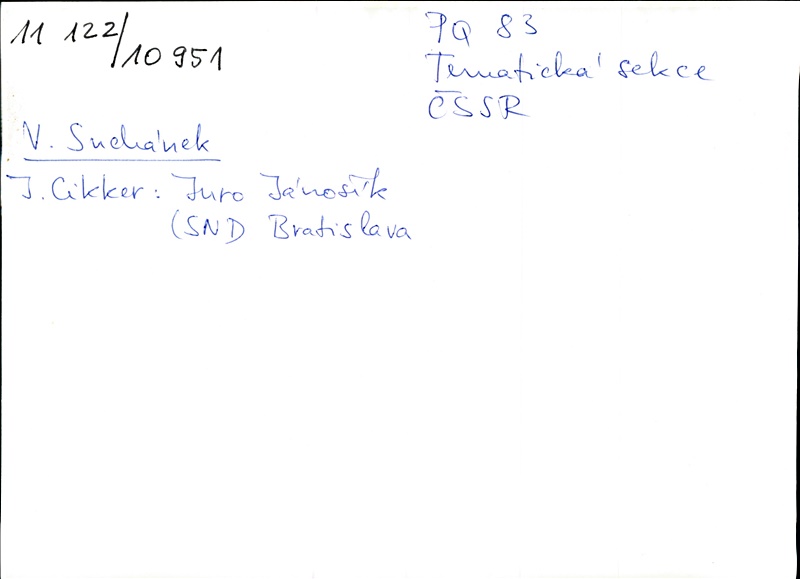 11 122/10 951
PQ 83
Tematická sekce
ČSSR
V. Suchánek
J. Cikker: Juro Jánošík
(SND Bratislava